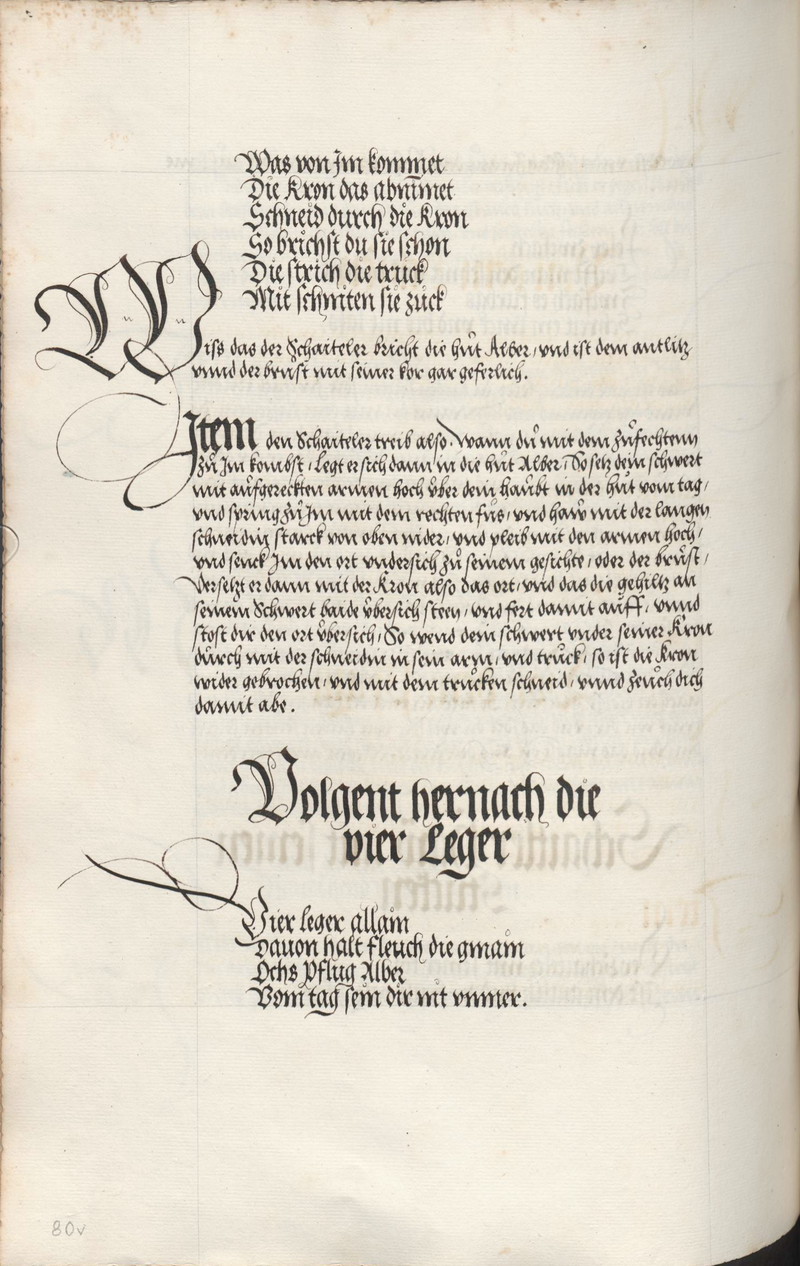 Was von Im kommet
Die Kron das abnimet
Schneid durch die Kron
So brichst du sie schon
Die strich die truck
Mit schniten sie zuck
Wiss das der Schaiteler bricht die hůt Alber, vnd ist dem antlitz
vnnd der brust mit seiner kor gar geferlich.
Item den Schaiteler treib also, Wann dů mit dem zůfechtenn
zů Im kombst, Legt er sich dann in die hůt Alber, So setz dein schwert
mit aůfgereckten armen hoch ůber dein haůbt in der hůt vom tag,
vnd spring zů Im mit dem rechten fůs, vnd haw mit der langen
schneidin starck von oben nider, vnd pleib mit den armen hoch,
vnd senck Im den ort vndersich zů seinem gesichte, oder der brůst,
Versetzt er dann mit der Kron also das ort, vnd das die gehiltz an
seinem Schwert baide ůbersich steen, vnd fert damit auff, vnnd
stost dir den ort ůbersich, So wend dein schwert vnder seiner Kron
důrch mit der schneidin in sein arm, vnd trůck, so ist die Kron
wider gebrochen, vnd mit dem trůcken schneid, vnnd zeůch dich
damit abe.
Volgent hernach die
vier Leger
Vier leger allain
Dauon halt fleuch die gmain
Ochs Pflug Alber
Vom tag sein dir nit vnmer.
80v